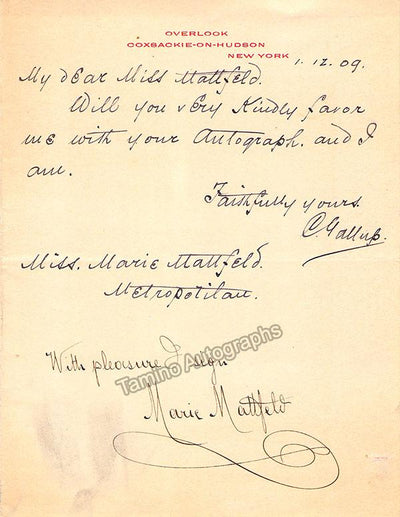 OVERLOOK
COXSACKIE-ON-HUDSON
NEW YORK
1.12.09.
My dear Miss Mattfeld.
Will you very Kindly favor
me with your Autograph. and I
am.
Faithfully yours.
C. Gallup.
Miss. Marie Mattfeld.
Metropolitan.
With pleasure I sign
Tamino Autographs
Marie Mattfeld